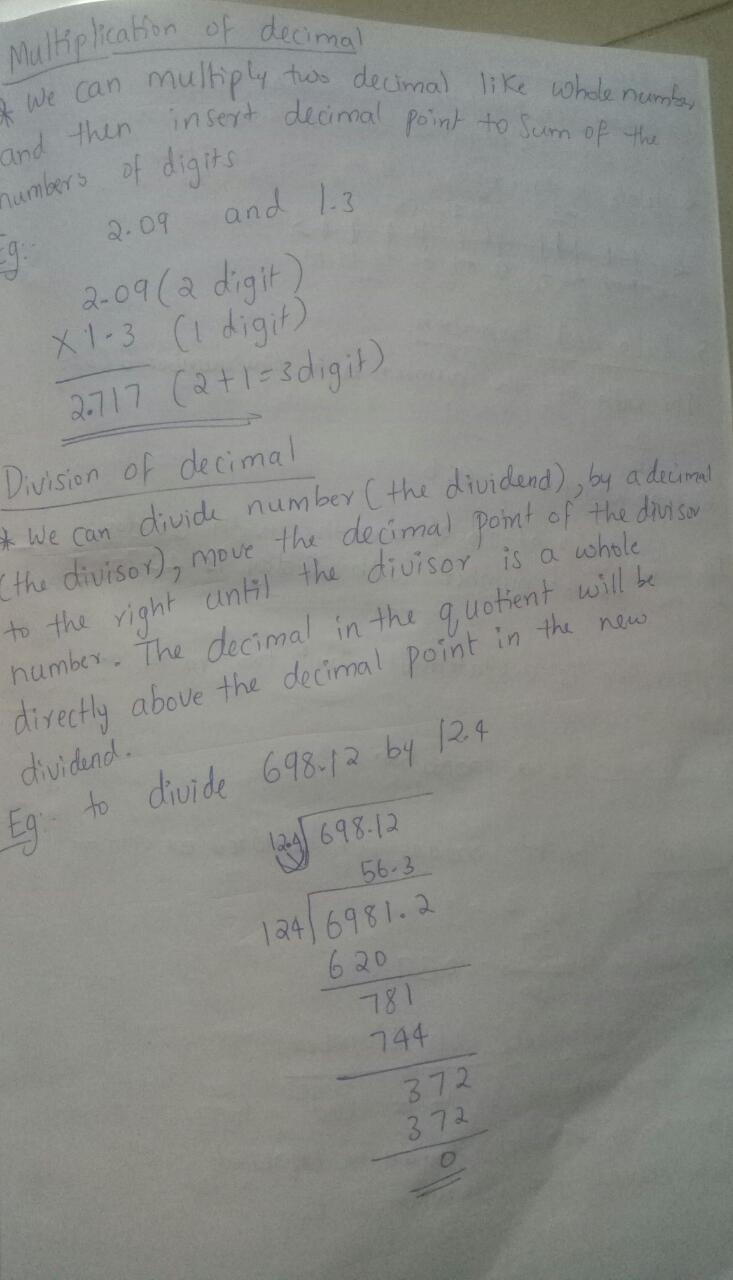 Multiplication of decimal
* We can multiply two decimal like whole number
and then insert decimal point to sum of the
numbers of digits
Eg:- 2.09 and 1.3
2.09 (2 digit)
x 1.3 (1 digit)
2.717 (2+1=3digit)
Division of decimal
* We can divide number (the dividend), by a decimal
(the divisor), move the decimal point of the divisor
to the right until the divisor is a whole
number. The decimal in the quotient will be
directly above the decimal point in the new
dividend.
Eg:- to divide 698.12 by 12.4
12.4 698.12
56.3
124 6981.2
620
781
744
372
372
0